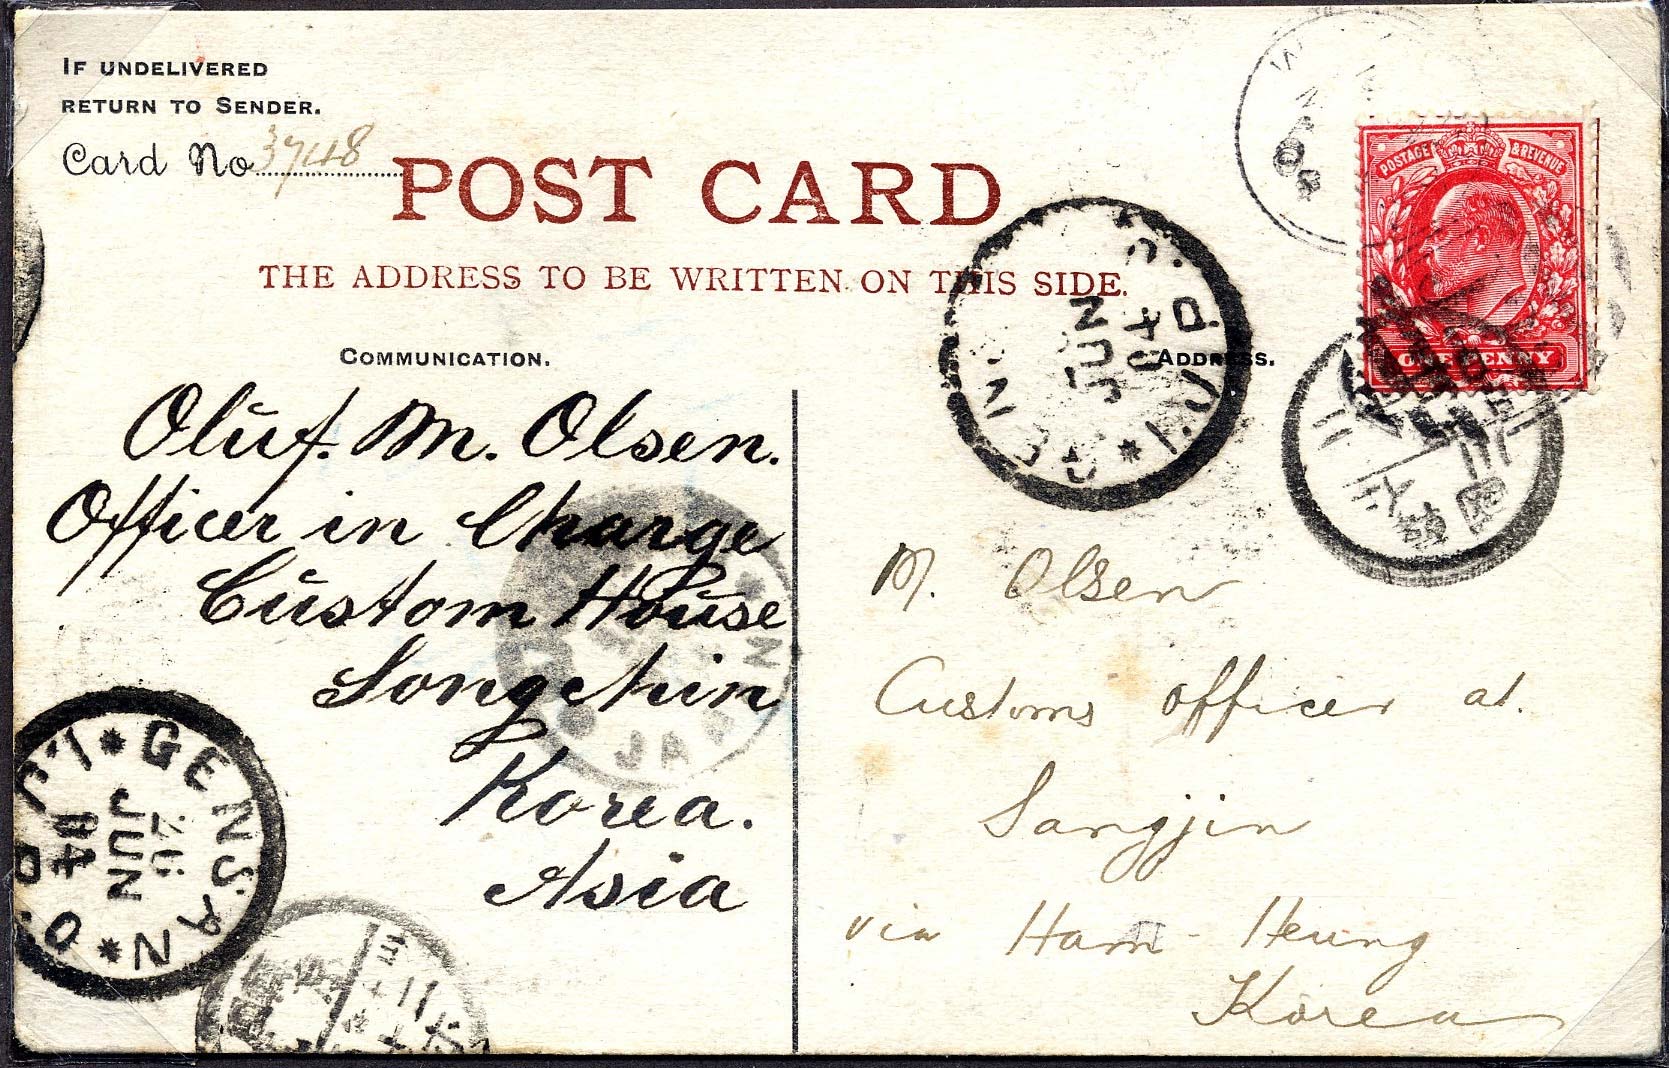 IF UNDELIVERED
RETURN TO SENDER.
Card No 37448
POST CARD
THE ADDRESS TO BE WRITTEN ON THIS SIDE.
POSTAGE & REVENUE
ONE PENNY
COMMUNICATION.
ADDRESS.
Oluf. M. Olsen.
Officer in Charge
Custom House
Songchin
Korea.
Asia
M. Olsen
Customs officer at.
Sangjin
via Ham-Heung
Korea
JUN
04
I.J.P.
GENSAN
JUN
04
I.J.P.O.
JAPAN